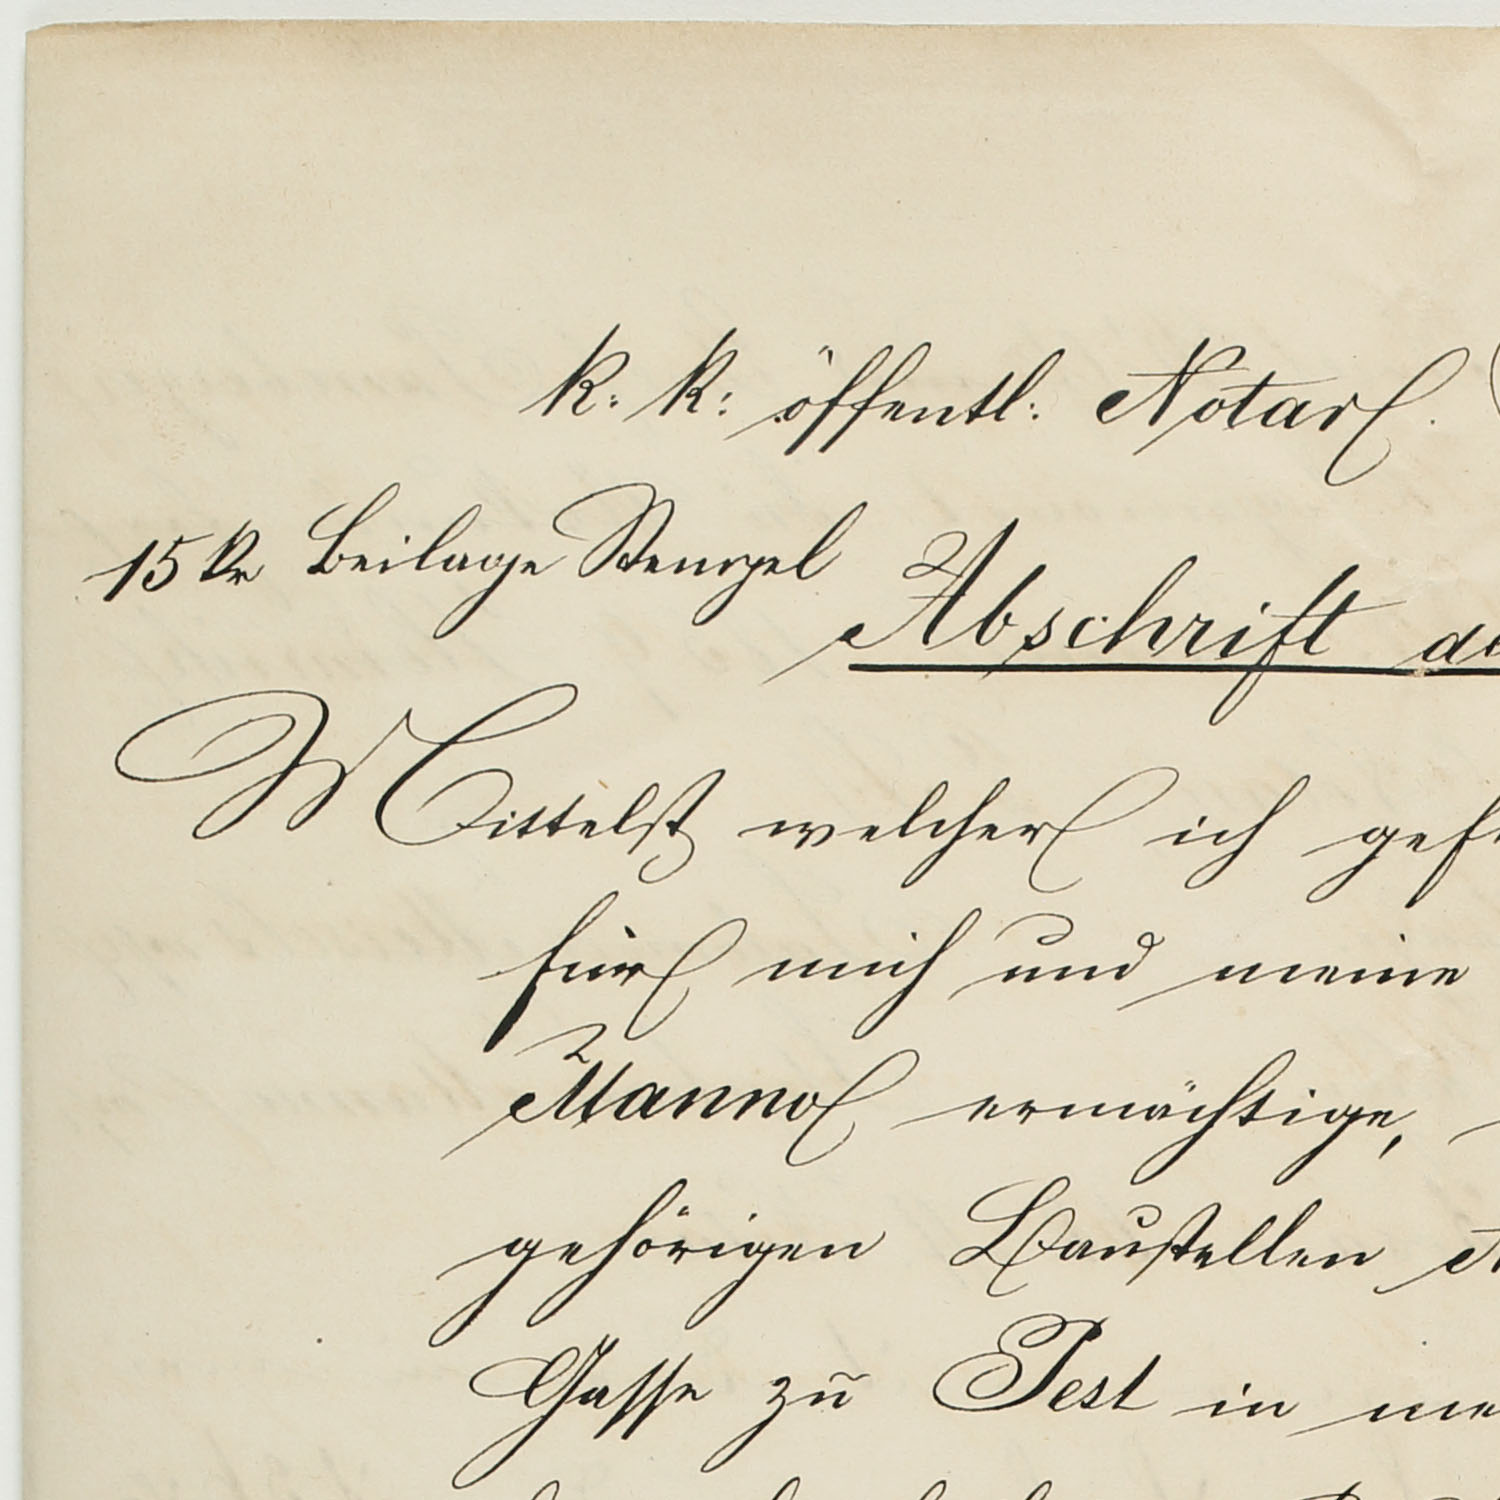 k: k: öffentl: Notar.
15 kr Beilage Stempel
Abschrift de
Mittelst welcher ich gef
für mich und meine
Manno ermächtige,
gehörigen Baustellen
Gasse zu Pest in me